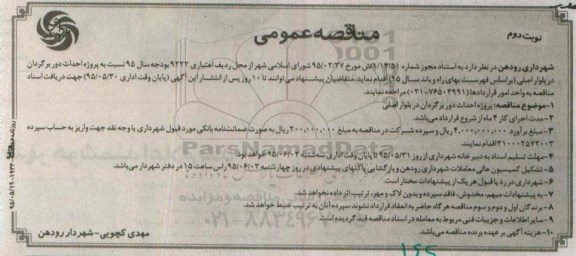 نوبت دوم
مناقصه عمومی
شهرداری رودهن در نظر دارد به استناد مجوز شماره ۱/۱۴/۵۱/ش مورخ ۹۵/۰۲/۲۷ شورای اسلامی شهر از محل ردیف اعتباری ۹۲۲۲ بودجه سال ۹۵ نسبت به پروژه احداث دور برگردان
در بلوار اصلی (براساس فهرست بهای راه و باند سال ۹۵) اقدام نماید. متقاضیان پیشنهاد می توانند تا ۱۰ روز پس از انتشار این آگهی (پایان وقت اداری ۹۵/۰۵/۳۰) جهت دریافت اسناد
مناقصه به واحد امور قراردادها (۷۶۵۰۲۹۹۱-۰۲۱) مراجعه نمایند.
۱-موضوع مناقصه: پروژه احداث دور برگردان در بلوار اصلی
۲- مدت اجرای کار ۴ ماه از شروع قرارداد می باشد.
۳- مبلغ برآورد ۴،۰۰۰،۰۰۰،۰۰۰ ریال و سپرده شرکت در مناقصه به مبلغ ۲۰۰،۰۰۰،۰۰۰ ریال به صورت ضمانتنامه بانکی مورد قبول شهرداری یا وجه نقد جهت واریز به حساب سپرده
۳۱۰۰۰۲۵۷۲۰۰۳ اقدام نمایند.
۴-مهلت تسلیم اسناد به دبیرخانه شهرداری از روز ۹۵/۰۵/۳۱ تا پایان وقت اداری سه شنبه ۹۵/۰۶/۰۲ خواهد بود.
۵- تشکیل کمیسیون عالی معاملات شهرداری رودهن و بازگشایی پاکتهای پیشنهادی در روز چهارشنبه ۹۵/۰۶/۰۳ راس ساعت ۱۵ در دفتر شهردار می باشد.
۶- شهرداری در رد یا قبول هر یک از پیشنهادات مختار است.
۷- به پیشنهادات مبهم، مخدوش، ناقص، بدون سپرده و بدون لاک و مهر، ترتیب اثر داده نخواهد شد.
۸- برندگان اول و دوم و سوم مناقصه هرگاه حاضر به انعقاد قرارداد نشوند سپرده آنان به ترتیب ضبط خواهد شد.
۹- سایر اطلاعات و جزییات فنی مربوط به معامله در اسناد مناقصه قید گردیده است.
۱۰- هزینه آگهی بر عهده برنده مناقصه می باشد.
مهدی کچویی- شهردار رودهن
ParsNamadData
۰۲۱-۸۸۳۴۹۶
۹۵/۰۵/۱۹
۱۶۵